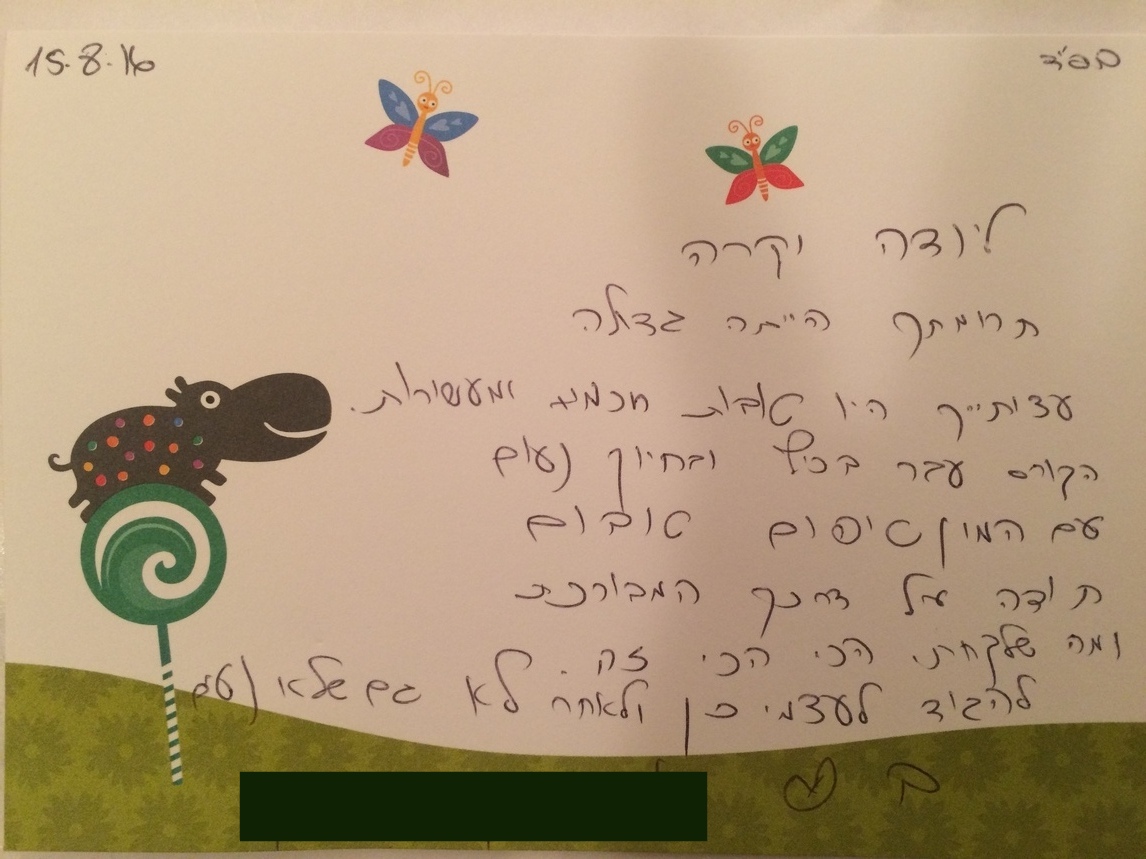 בס"ד 15.8.16
ליודה יקרה
תרומתך הייתה גדולה
עצותייך היו טובות חכמות ומעשירות.
הקורס עבר בכיף ובחיוך נעים
עם המון טיפים טובים
תודה על דרכך המבורכת
ומה שלקחתי הכי הכי זה.
להגיד לעצמי כן ולאחר לא גם שלא נעים
ב